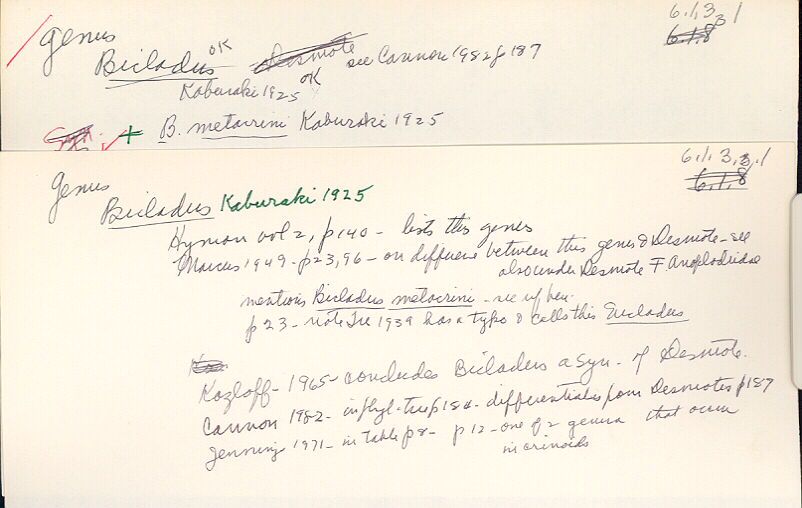 6.1.3.3.1
genus
6.1.8
Bicladus OK Desmote see Cannon 1982 p 187
Kaburaki 1925 OK
Syn. + B. metacrini Kaburaki 1925
6.1.3.3.1
genus
6.1.8
Bicladus Kaburaki 1925
Hyman vol 2, p 140 - lists this genus
Marcus 1949 - p 23, 96 - on difference between this genus & Desmote - see
also under Desmote F Anoplodiidae
mentions Bicladus metacrini - see sp here
p 23 - note 1939 has a typo & calls this Eucladus
Kozloff - 1965 - concludes Bicladus a syn. of Desmote.
Cannon 1982 - in phyl. tree p 184 - differentiates from Desmotes p 187
Jennings 1971 - in table p 8 - p 12 - one of 2 genera that occur
in crinoids